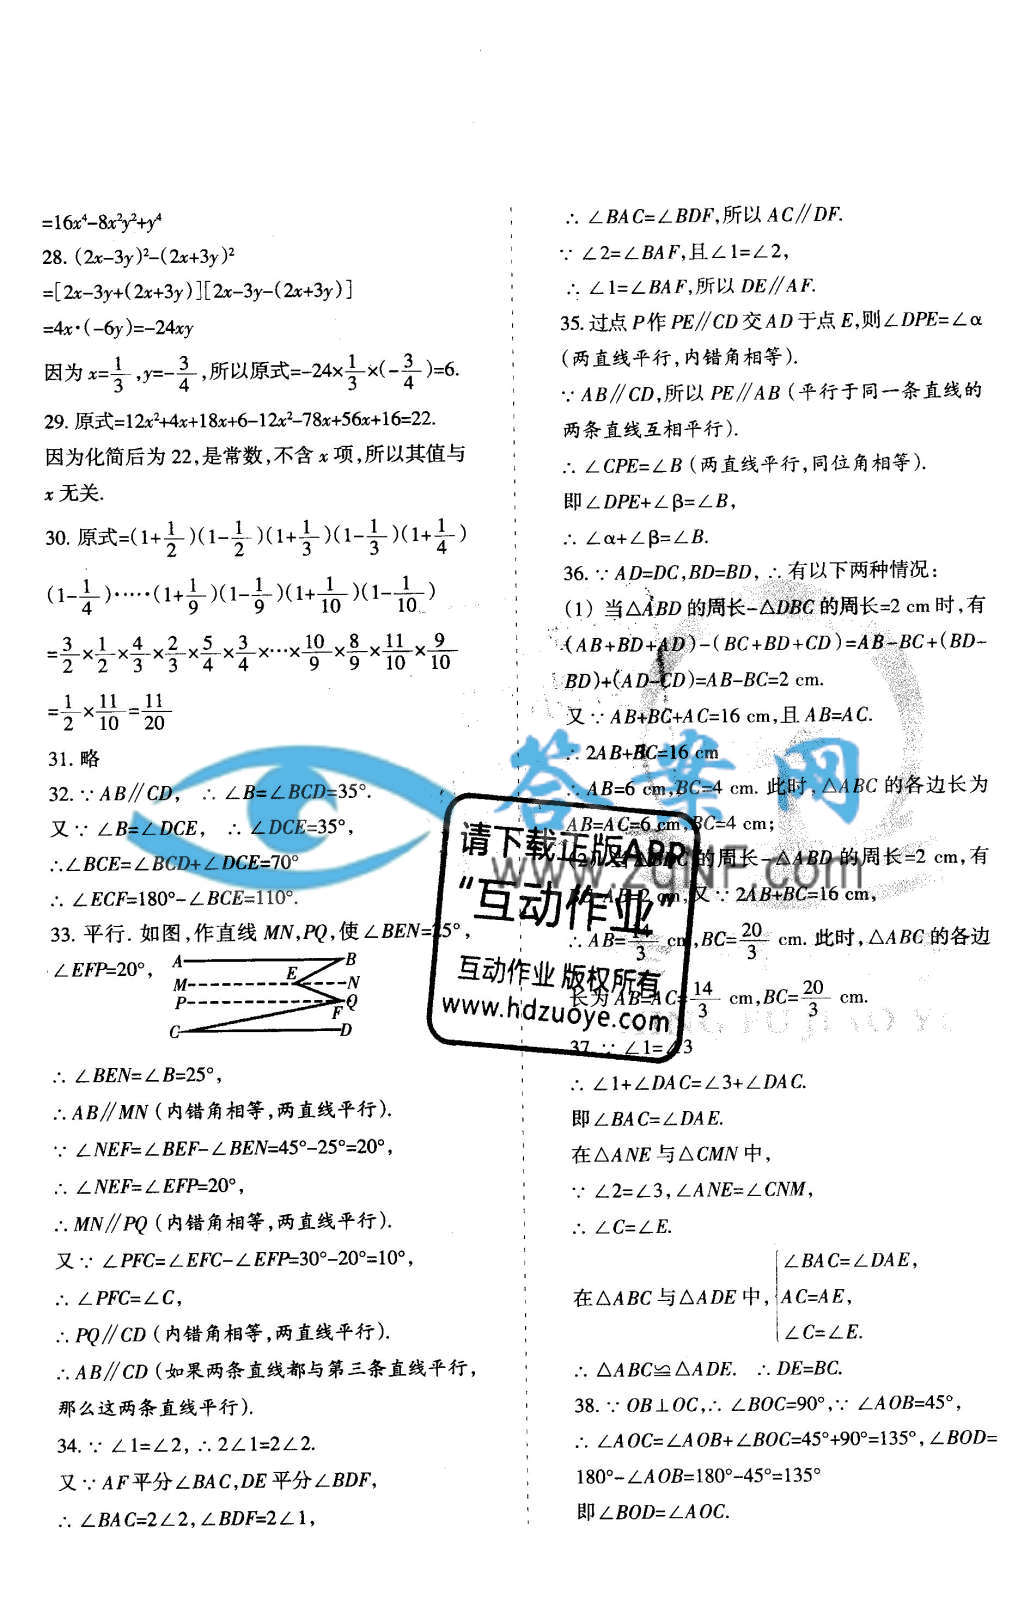 =16x⁴-8x²y²+y⁴
28. (2x-3y)²-(2x+3y)²
=[2x-3y+(2x+3y)][2x-3y-(2x+3y)]
=4x·(-6y)=-24xy
因为 x=1/3,y=-3/4,所以原式=-24×1/3×(-3/4)=6.
29. 原式=12x²+4x+18x+6-12x²-78x+56x+16=22.
因为化简后为 22,是常数,不含 x 项,所以其值与
x 无关.
30. 原式=(1+1/2)(1-1/2)(1+1/3)(1-1/3)(1+1/4)
(1-1/4)·····(1+1/9)(1-1/9)(1+1/10)(1-1/10)
=3/2×1/2×4/3×2/3×5/4×3/4×···×10/9×8/9×11/10×9/10
=1/2×11/10=11/20
31. 略
32. ∵ AB∥CD, ∴ ∠B=∠BCD=35°.
又∵ ∠B=∠DCE, ∴ ∠DCE=35°,
∴∠BCE=∠BCD+∠DCE=70°
∴ ∠ECF=180°-∠BCE=110°.
33. 平行. 如图,作直线 MN,PQ,使∠BEN=25°,
∠EFP=20°,
A B
M E N
P F Q
C D
∴ ∠BEN=∠B=25°,
∴ AB∥MN (内错角相等,两直线平行).
∵ ∠NEF=∠BEF-∠BEN=45°-25°=20°,
∴ ∠NEF=∠EFP=20°,
∴ MN∥PQ (内错角相等,两直线平行).
又∵ ∠PFC=∠EFC-∠EFP=30°-20°=10°,
∴ ∠PFC=∠C,
∴ PQ∥CD (内错角相等,两直线平行).
∴ AB∥CD (如果两条直线都与第三条直线平行,
那么这两条直线平行).
34. ∵ ∠1=∠2, ∴ 2∠1=2∠2.
又∵ AF 平分∠BAC,DE 平分∠BDF,
∴ ∠BAC=2∠2,∠BDF=2∠1,
∴ ∠BAC=∠BDF,所以 AC∥DF.
∵ ∠2=∠BAF,且∠1=∠2,
∴ ∠1=∠BAF,所以 DE∥AF.
35. 过点 P 作 PE∥CD 交 AD 于点 E,则∠DPE=∠α
(两直线平行,内错角相等).
∵ AB∥CD,所以 PE∥AB (平行于同一条直线的
两条直线互相平行).
∴ ∠CPE=∠B (两直线平行,同位角相等).
即∠DPE+∠β=∠B,
∴ ∠α+∠β=∠B.
36. ∵ AD=DC,BD=BD, ∴ 有以下两种情况:
(1) 当△ABD 的周长-△DBC 的周长=2 cm 时,有
(AB+BD+AD)-(BC+BD+CD)=AB-BC+(BD-
BD)+(AD-CD)=AB-BC=2 cm.
又∵ AB+BC+AC=16 cm,且 AB=AC.
∴ 2AB+BC=16 cm
∴ AB=6 cm,BC=4 cm. 此时,△ABC 的各边长为
AB=AC=6 cm,BC=4 cm;
的周长-△ABD 的周长=2 cm,有
又∵ 2AB+BC=16 cm,
∴ AB=14/3 cm,BC=20/3 cm. 此时,△ABC 的各边
长为 AB=AC=14/3 cm,BC=20/3 cm.
37. ∵ ∠1=∠3
∴ ∠1+∠DAC=∠3+∠DAC.
即∠BAC=∠DAE.
在△ANE 与△CMN 中,
∵ ∠2=∠3,∠ANE=∠CNM,
∴ ∠C=∠E.
∠BAC=∠DAE,
在△ABC 与△ADE 中, AC=AE,
∠C=∠E.
∴ △ABC≌△ADE. ∴ DE=BC.
38. ∵ OB⊥OC,∴ ∠BOC=90°,∵ ∠AOB=45°,
∴ ∠AOC=∠AOB+∠BOC=45°+90°=135°,∠BOD=
180°-∠AOB=180°-45°=135°
即∠BOD=∠AOC.
答案网
www.zqnf.com
请下载正版APP
“互动作业”
互动作业 版权所有
www.hdzuoye.com